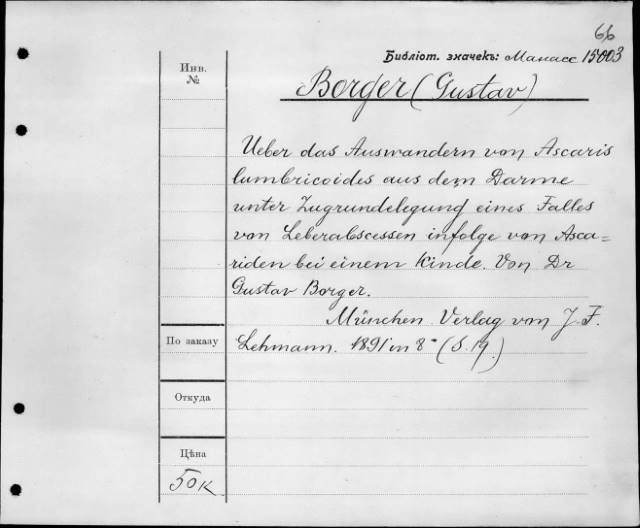 66
Библіот. значекъ: Манасс 15003
Инв.
№
Borger (Gustav)
Ueber das Auswandern von Ascaris
lumbricoides aus dem Darme
unter Zugrundelegung eines Falles
von Leberabscessen infolge von Asca=
riden bei einem Kinde. Von Dr
Gustav Borger.
München. Verlag von J. F.
По заказу
Lehmann. 1891 in 8° (S. 19.)
Откуда
Цѣна
50 к